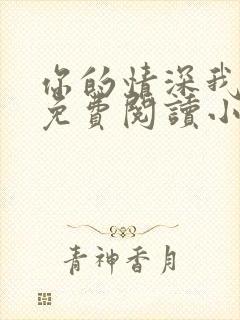 你的情深我
免費閱讀小
青神香月